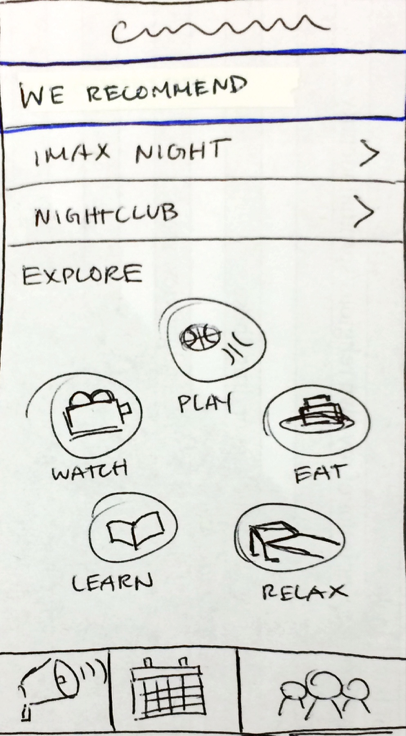 WE RECOMMEND
IMAX NIGHT
NIGHTCLUB
EXPLORE
PLAY
WATCH
EAT
LEARN
RELAX